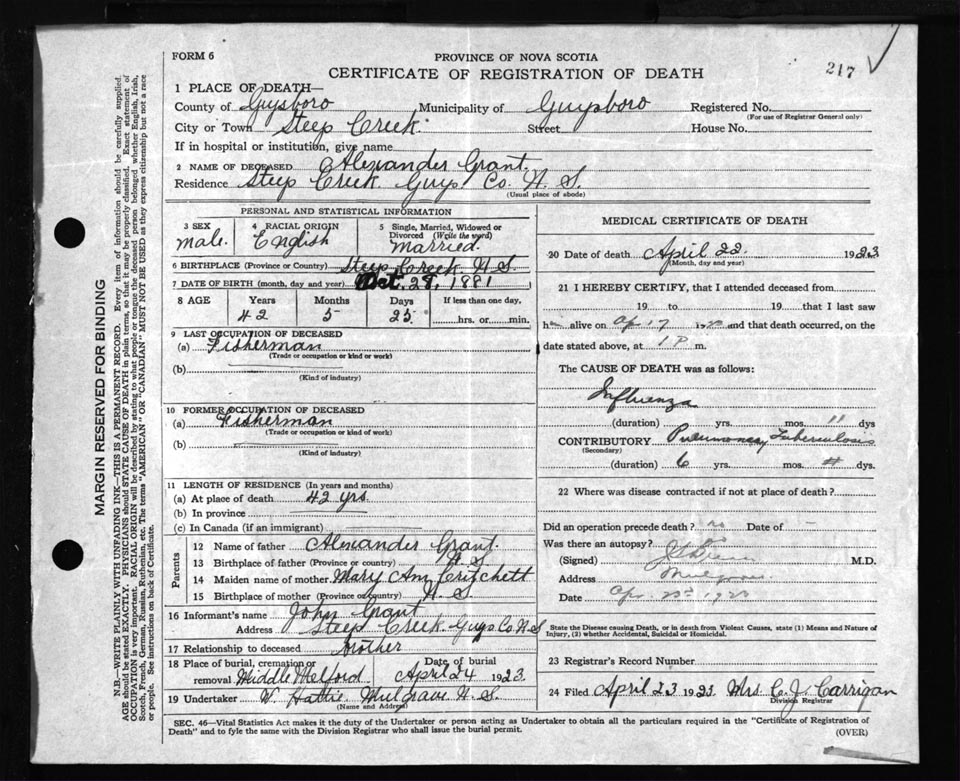 217
FORM 6
PROVINCE OF NOVA SCOTIA
CERTIFICATE OF REGISTRATION OF DEATH
1 PLACE OF DEATH—
County of Guysboro Municipality of Guysboro Registered No.
(For use of Registrar General only)
City or Town Steep Creek. Street House No.
If in hospital or institution, give name
2 NAME OF DECEASED Alexander Grant.
Residence Steep Creek Guys Co. N. S.
(Usual place of abode)
PERSONAL AND STATISTICAL INFORMATION
3 SEX
male.
4 RACIAL ORIGIN
English
5 Single, Married, Widowed or
Divorced (Write the word)
Married.
6 BIRTHPLACE (Province or Country) Steep Creek N. S.
7 DATE OF BIRTH (month, day and year) Oct. 28, 1881
8 AGE Years Months Days If less than one day,
42 5 25 hrs. or min.
9 LAST OCCUPATION OF DECEASED
(a) Fisherman
(Trade or occupation or kind or work)
(b)
(Kind of industry)
10 FORMER OCCUPATION OF DECEASED
(a) Fisherman
(Trade or occupation or kind of work)
(b)
(Kind of industry)
11 LENGTH OF RESIDENCE (In years and months)
(a) At place of death 42 yrs.
(b) In province
(c) In Canada (if an immigrant)
Parents
12 Name of father Alexander Grant
13 Birthplace of father (Province or Country) N. S
14 Maiden name of mother Mary Ann Critchett
15 Birthplace of mother (Province or Country) N. S
16 Informant's name John Grant
Address Steep Creek Guys Co N. S
17 Relationship to deceased Brother
18 Place of burial, cremation or
removal Middle Melford
Date of burial
April 24 1923.
19 Undertaker W. Hattie Mulgrave N. S.
(Name and Address)
MEDICAL CERTIFICATE OF DEATH
20 Date of death April 22 1923
(Month, day and year)
21 I HEREBY CERTIFY, that I attended deceased from
19 to 19 that I last saw
h alive on Ap 17 and that death occurred, on the
date stated above, at 1 P m.
The CAUSE OF DEATH was as follows:
Influenza
(duration) yrs. mos. 11 dys
CONTRIBUTORY Pulmonary Tuberculosis
(Secondary)
(duration) 6 yrs. mos. dys.
22 Where was disease contracted if not at place of death?
Did an operation precede death? no Date of –
Was there an autopsy? no
(Signed) M.D.
Address Mulgrave
Date Apr 1923
State the Disease causing Death, or in death from Violent Causes, state (1) Means and Nature of
Injury, (2) whether Accidental, Suicidal or Homicidal.
23 Registrar's Record Number
24 Filed April 23 1923. Mrs. C. J. Carrigan
Division Registrar
SEC. 46—Vital Statistics Act makes it the duty of the Undertaker or person acting as Undertaker to obtain all the particulars required in the "Certificate of Registration of
Death" and to fyle the same with the Division Registrar who shall issue the burial permit.
(OVER)
MARGIN RESERVED FOR BINDING
N.B.—WRITE PLAINLY WITH UNFADING INK—THIS IS A PERMANENT RECORD. Every item of information should be carefully supplied.
AGE should be stated EXACTLY. PHYSICIANS should STATE CAUSE OF DEATH in plain terms, so that it may be properly classified. Exact statement of
OCCUPATION is very important. RACIAL ORIGIN will be described by stating to what people or tongue the deceased person belonged whether English, Irish,
Scotch, French, German, Russian, Ruthenian, etc. The terms "AMERICAN" OR "CANADIAN" MUST NOT BE USED as they express citizenship but not a race
or people. See instructions on back of Certificate.